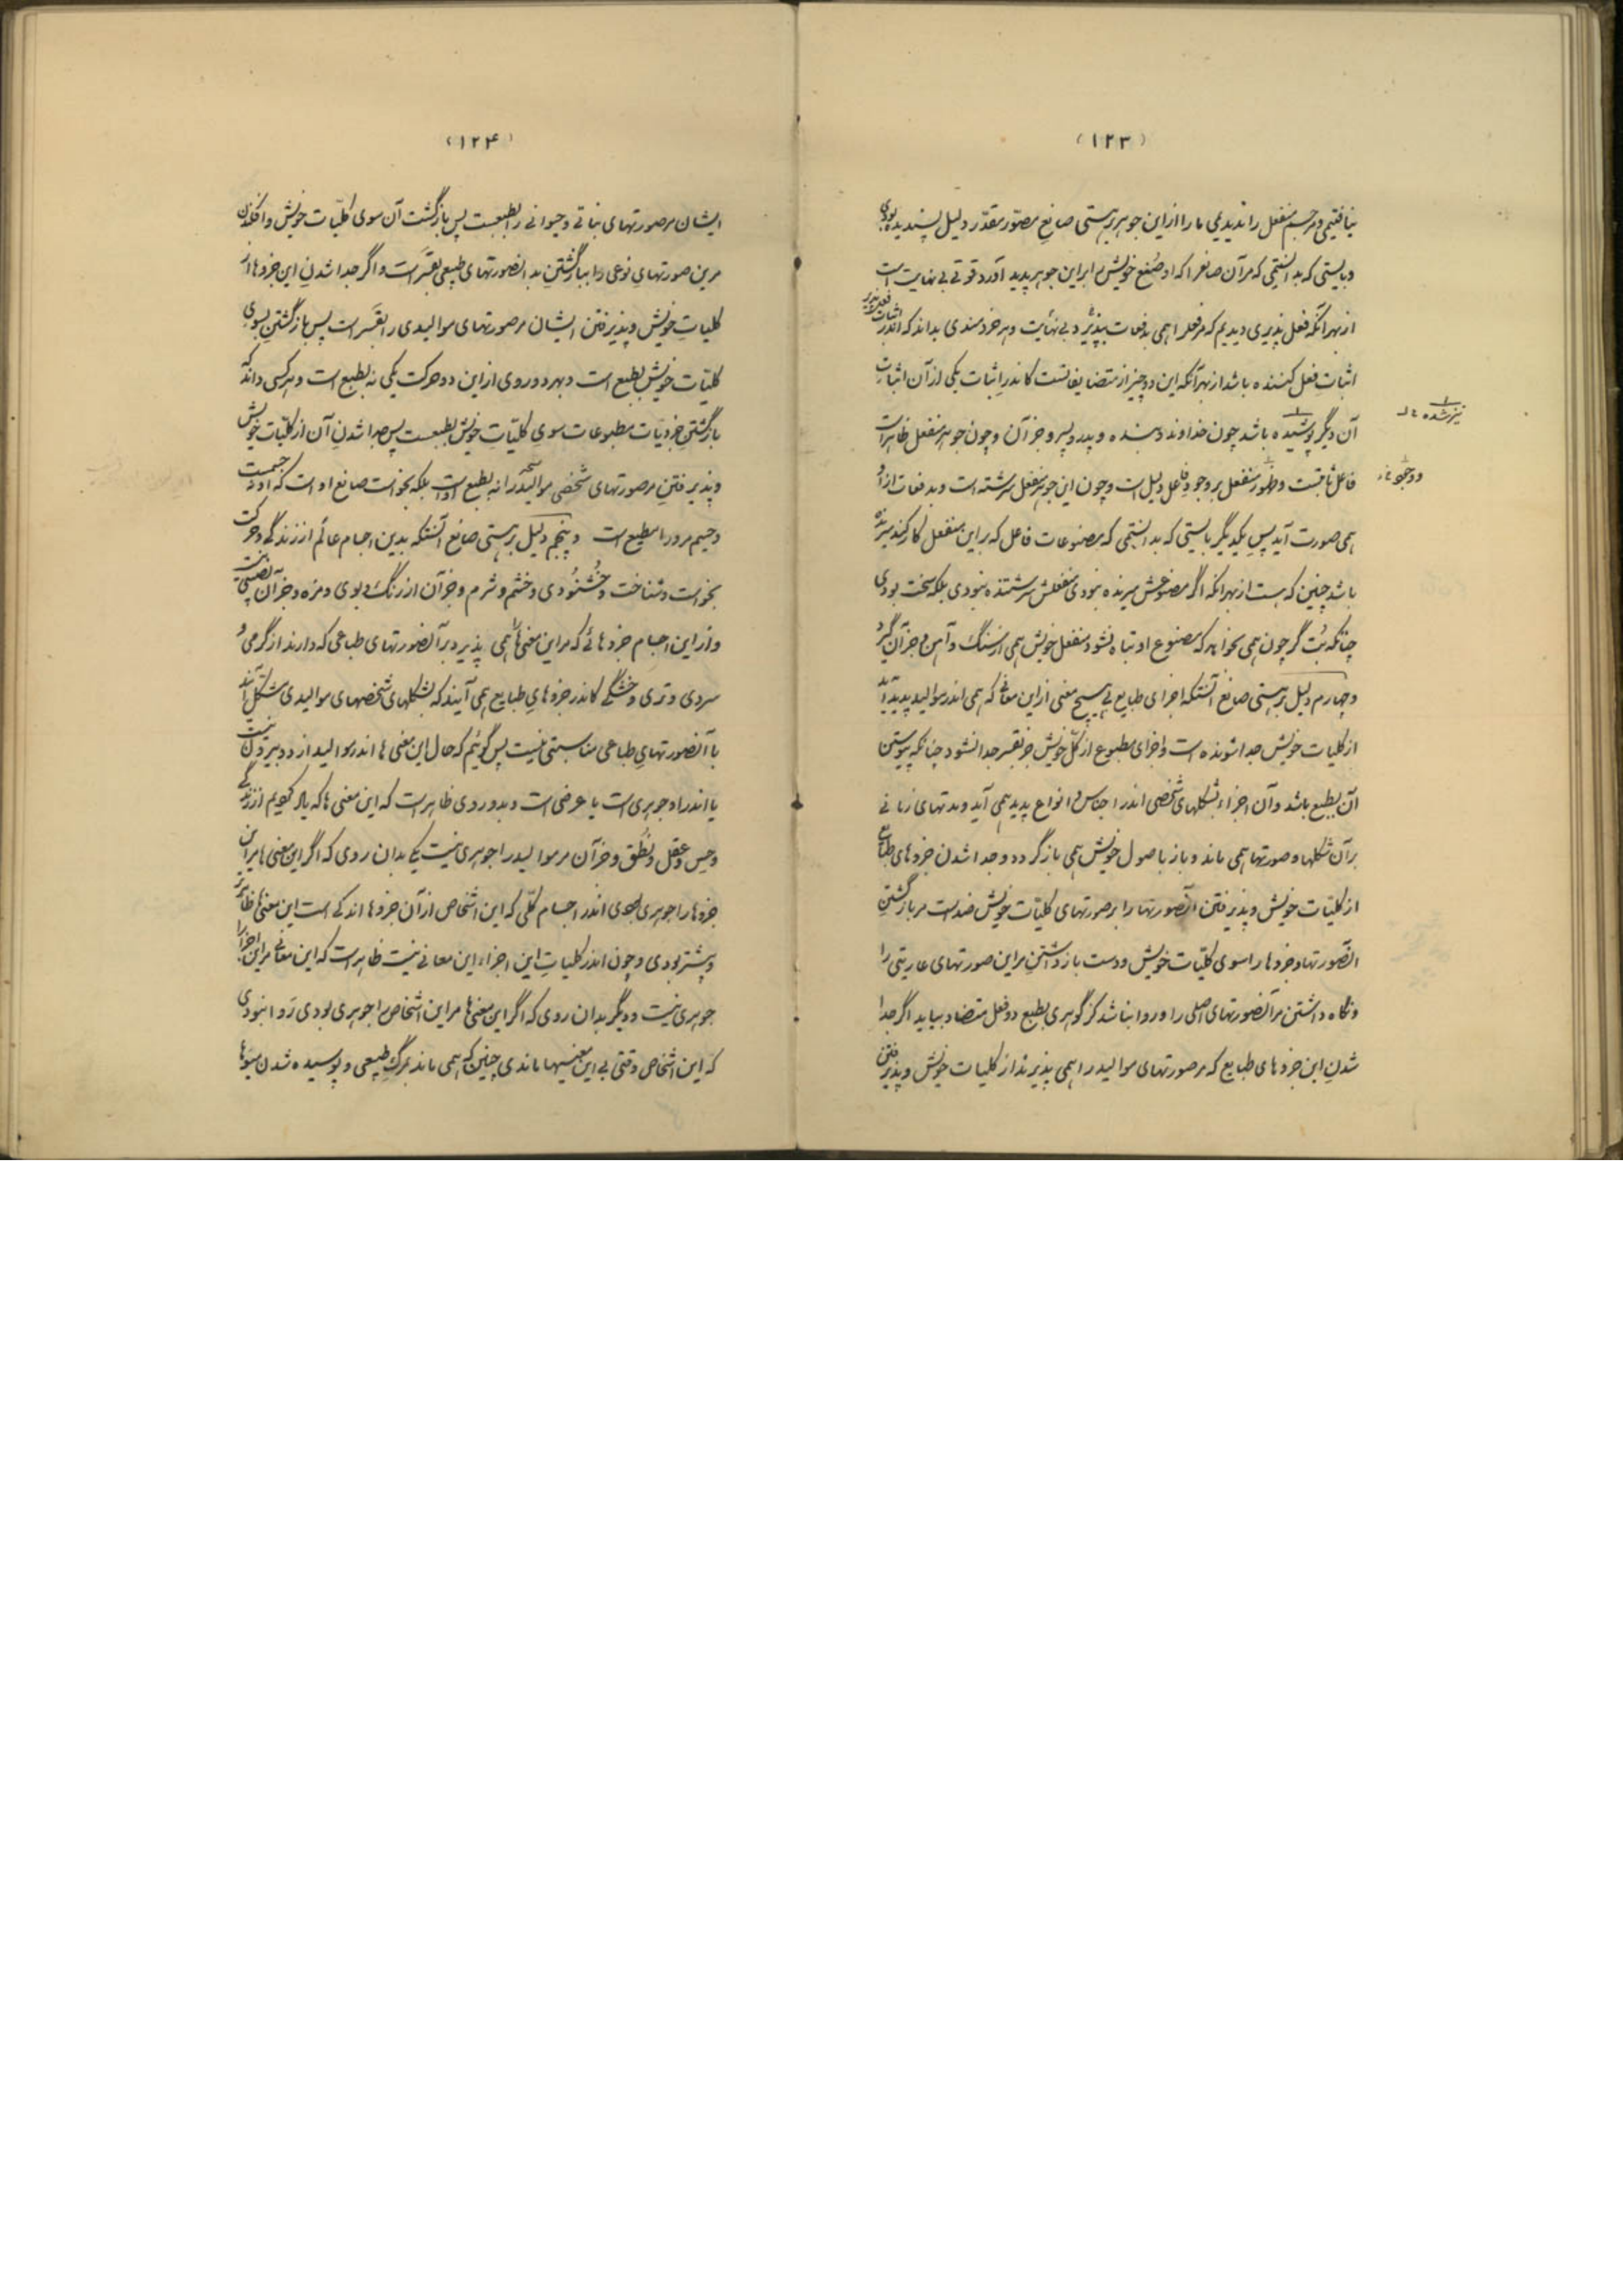 (۱۲۳)
نیافتیمی و مر جسم منفعل را ندیدیمی ما را از این جوهر بر هستی صانع مصوّر مقدّر دلیل پسندیده بودی
و بایستی که بدانستیمی که مر آن صانع را که او صُنع خویش را بر این جوهر پدید آورد قوّتی بی نهایت است
از بهر آنکه فعل پذیری دیدیم که مر فعل را همی بدفعات بپذیرد بی نهایت و هر خردمندی بداند که اندر اثبات فعل پذیر
اثبات فعل کننده باشد از بهر آنکه این دو چیز از متضایفانست کاندر اثبات یکی از آن اثبات
آن دیگر پوشیده باشد چون خداوند و بنده و پدر و پسر و جز آن و چون جوهر منفعل ظاهر است
نیز شده
فاعل ثابتست و ظهور منفعل بر وجود فاعل دلیل است و چون این جوهر منفعل سرشته است و بدفعات از او
همی صورت آید پس یکدیگر بایستی که بدانستیمی که مصنوعات فاعل که بر این منفعل کار کند میرنده
باشد چنین که هست از بهر آنکه اگر مصنوعش میرنده نبودی منفعلش سرشتنده نبودی بلکه سخت بودی
چنانکه بُت گر چون همی بخواهد که مصنوع او تباه نشود منفعل خویش همی از سنگ و آهن و جز آن گیرد
و چهارم دلیل بر هستی صانع آنستکه اجزای طبایع بی هیچ معنی از این معانی که همی اندر موالید پدید آید
از کلیات خویش جدا شونده است و اجزای مطبوع از کلّ خویش جز بقسر جدا نشود چنانکه پیوستن
آن بطبع باشد و آن اجزاء بشکلهای شخصی اندر اجناس و انواع پدید همی آید و مدتهای زمانی
بر آن شکلها و صورتها همی ماند و باز باصول خویش همی باز گردد و جدا شدن جزوهای طبایع
از کلیّات خویش و پذیرفتن آنصورتها را بر صورتهای کلیّات خویش ضد است مر باز گشتن
آنصورتها و جزوها را سوی کلیّات خویش و دست باز داشتن مر این صورتهای عاریتی را
و نگاه داشتن مر آنصورتهای اصلی را و روا نباشد کز گوهری بطبع دو فعل متضاد بیاید اگر جدا
شدن این جزوهای طبایع که مر صورتهای موالید را همی پذیرند از کلیات خویش و پذیرفتن
(۱۲۴)
ایشان مر صورتهای نباتی و حیوانی را بطبعست پس باز گشت آن سوی کلیّات خویش و افکندن
مرین صورتهای نوعی را بباز گشتن بدانصورتهای طبیعی بقسَر است و اگر جدا شدن این جزوها از
کلیات خویش و پذیرفتن ایشان مر صورتهای موالیدی را بقسَر است پس باز گشتن بسوی
کلیّات خویش بطبع است و بهر دو روی از این دو حرکت یکی نه بطبع است و هر کسی داند که
باز گشتن جزویّات مطبوعات سوی کلیّات خویش بطبعست پس جدا شدن آن از کلیّات خویش
و پذیرفتن مر صورتهای شخصی موالید را نه بطبع است بلکه بخواست صانع او است که او نه جسمست
و جسم مرو را مطیع است و پنجم دلیل بر هستی صانع آنستکه بدین اجسام عالم از زندگی و حرکت
بخواست و شناخت و خُشنُودی و خشم و شرم و جز آن از رنگ و بوی و مزه و جز آن نصیبی نیست
و از این اجسام جزوهائی که مر این معنی ها را همی پذیرد بر آنصورتهای طباعی که دارند از گرمی و
سردی و تری و خشگی کاندر جزوهای طبایع همی آیند که بشکلهای شخصهای موالیدی مشکل آیند
با آنصورتهای طباعی مناسبتی نیست پس گوئیم که حال این معنی ها اندر موالید از دو بیرون نیست
یا اندر او جوهری است یا عرضی است و بدو روی ظاهر است که این معنی ها که یاد کردیم از زندگی
و حس و عقل و نُطق و جز آن مر موالید را جوهری نیست یکی بدان روی که اگر این معنی ها مر این
جزوها را جوهری بودی اندر اجسام کلّی که این اشخاص از آن جزوها اندکی است این معنی ها ظاهرتر
و بیشتر بودی و چون اندر کلیات این اجزاء این معانی نیست ظاهر است که این معانی مر این اجزا را
جوهری نیست و دیگر بدان روی که اگر این معنی ها مر این اشخاص را جوهری بودی رَوا نبودی
که این اشخاص وقتی بی این معنیها ماندی چنین که همی ماند بمرگ طبیعی و پوسیده شدن میوها